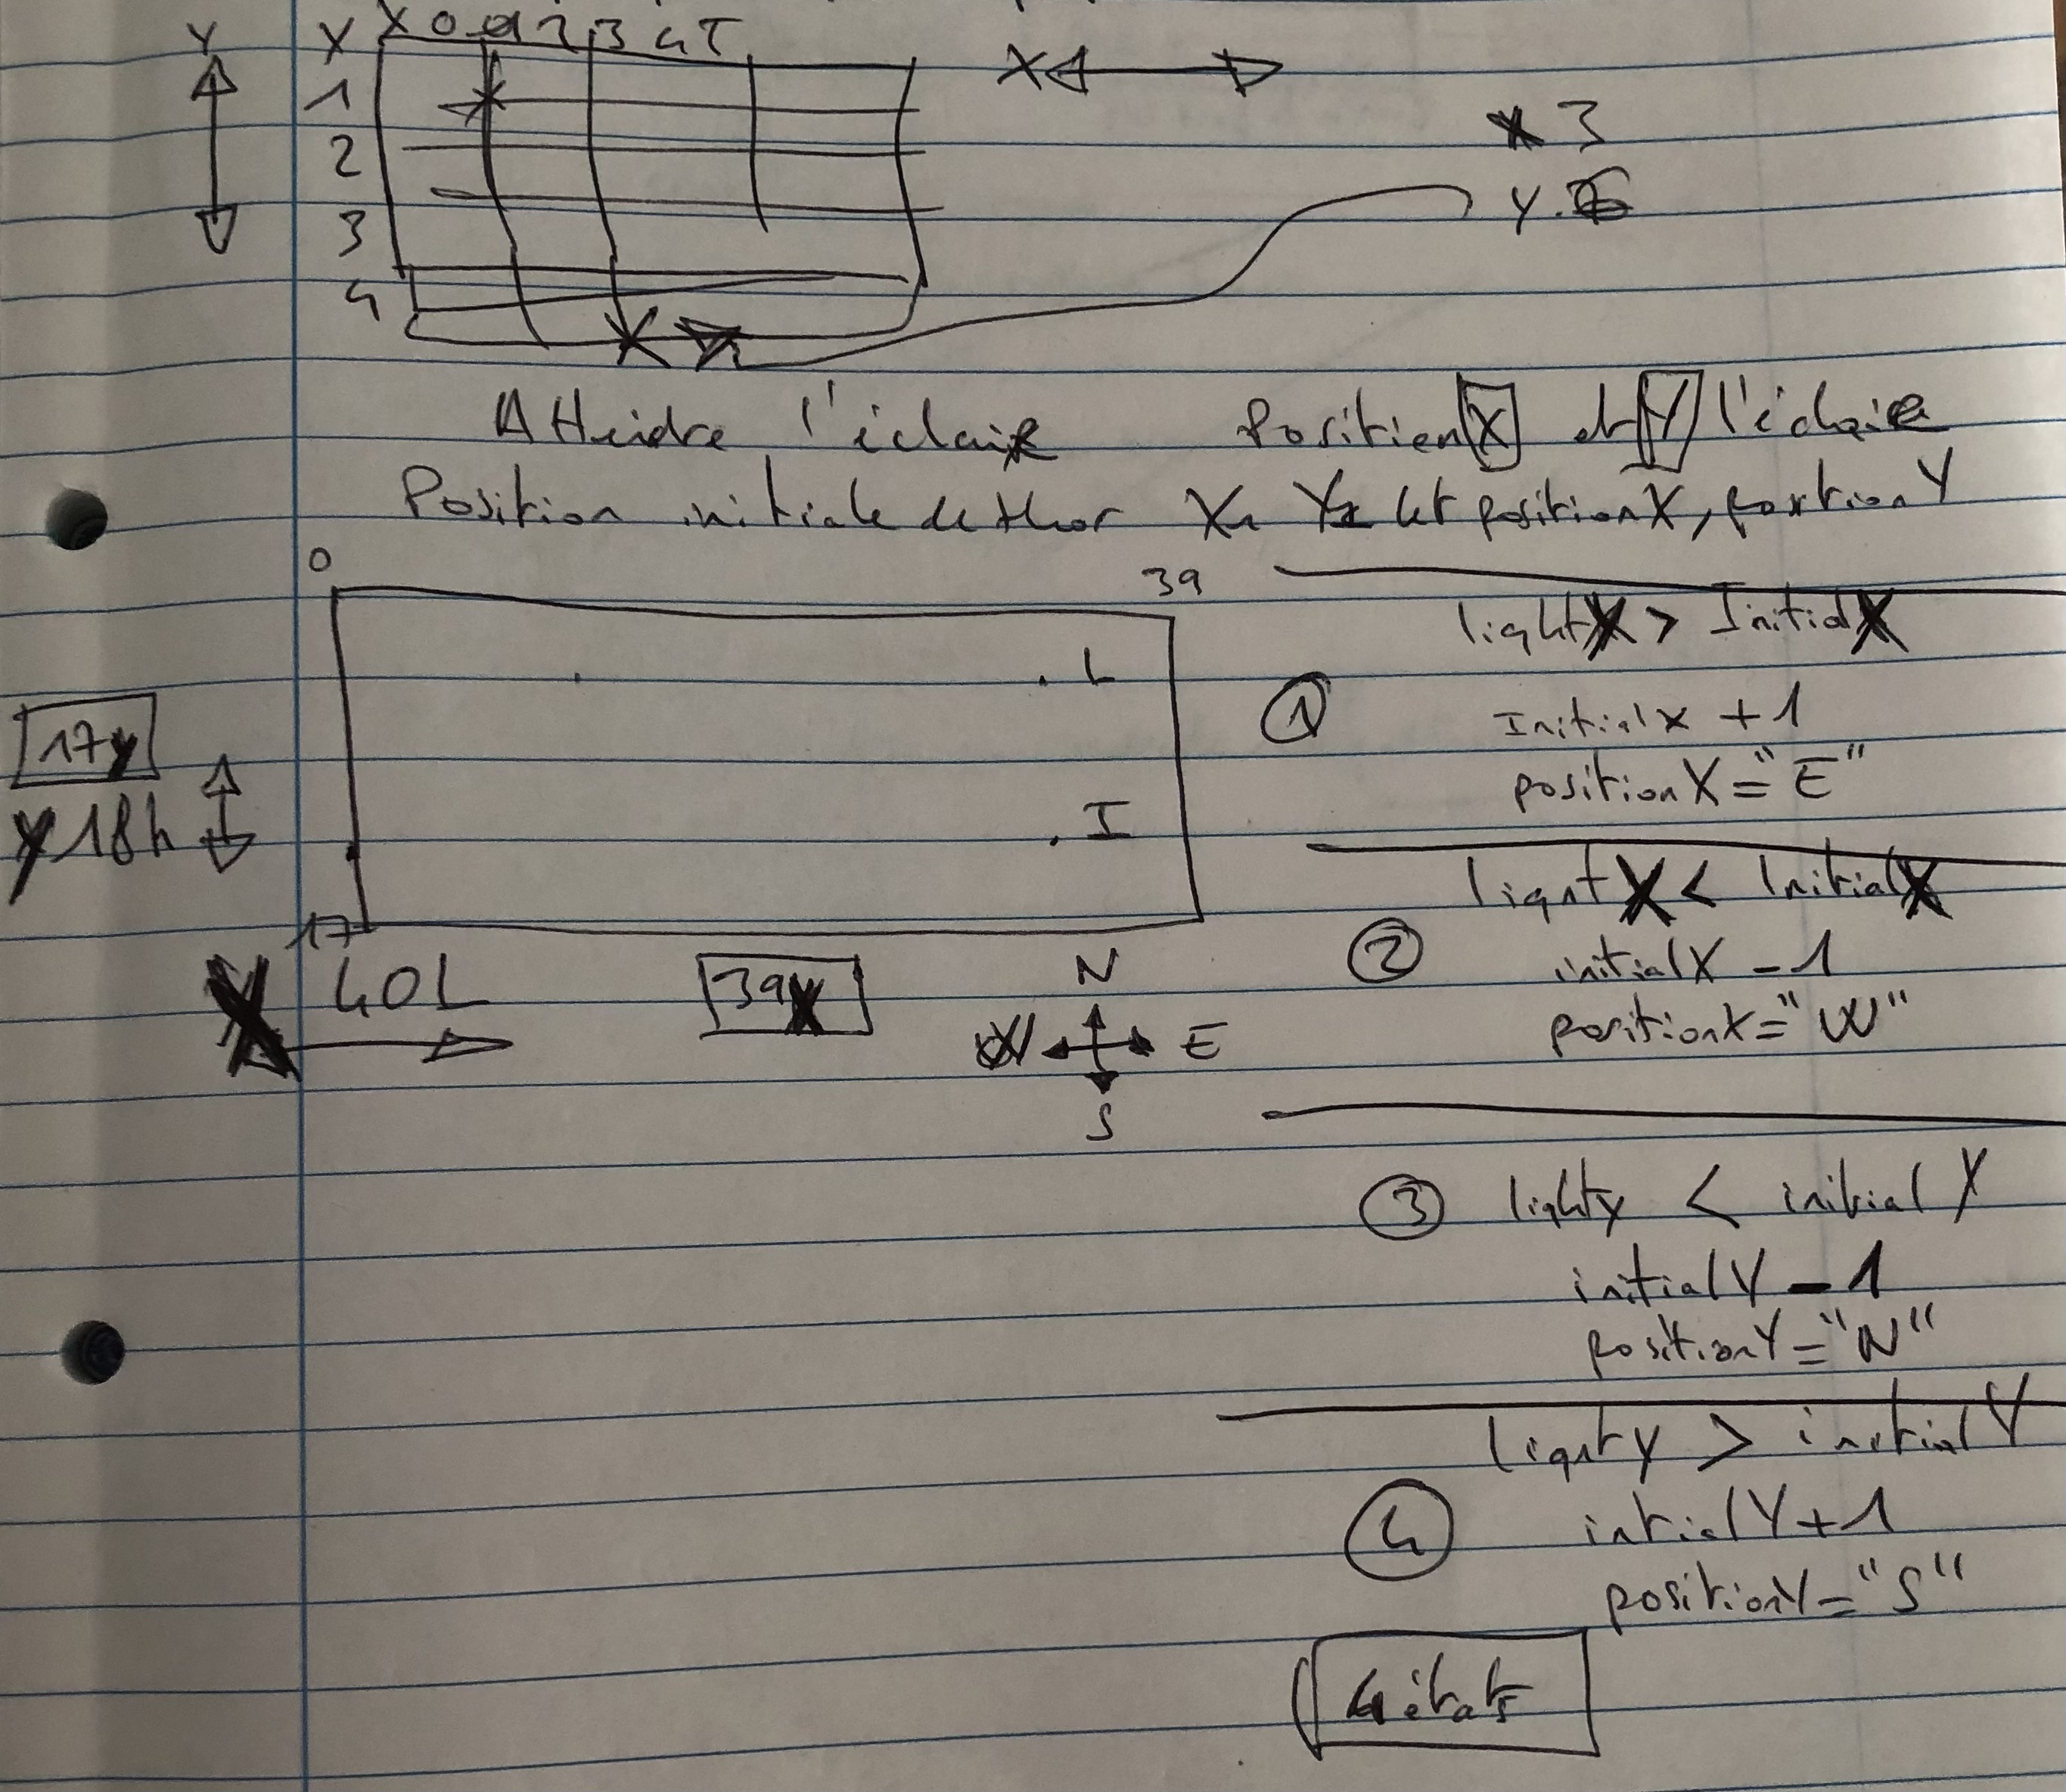 Y
X
X 0 1 2 3 4 5
1
2
3
4
X
3
Y
Atteidre l'éclaire
Position X et Y l'éclaire
Position initiale de thor X Y let positionX, position Y
0
39
L
I
17y
y 18h
17
X 40L
39X
N
W
E
S
lightX > InitialX
1
Initialx + 1
positionX = "E"
lightX < InitialX
2
initialX - 1
positionX = "W"
3
lighty < initial Y
initialY - 1
positionY = "N"
lighty > initialY
4
intialY + 1
positionY = "S"
4 états